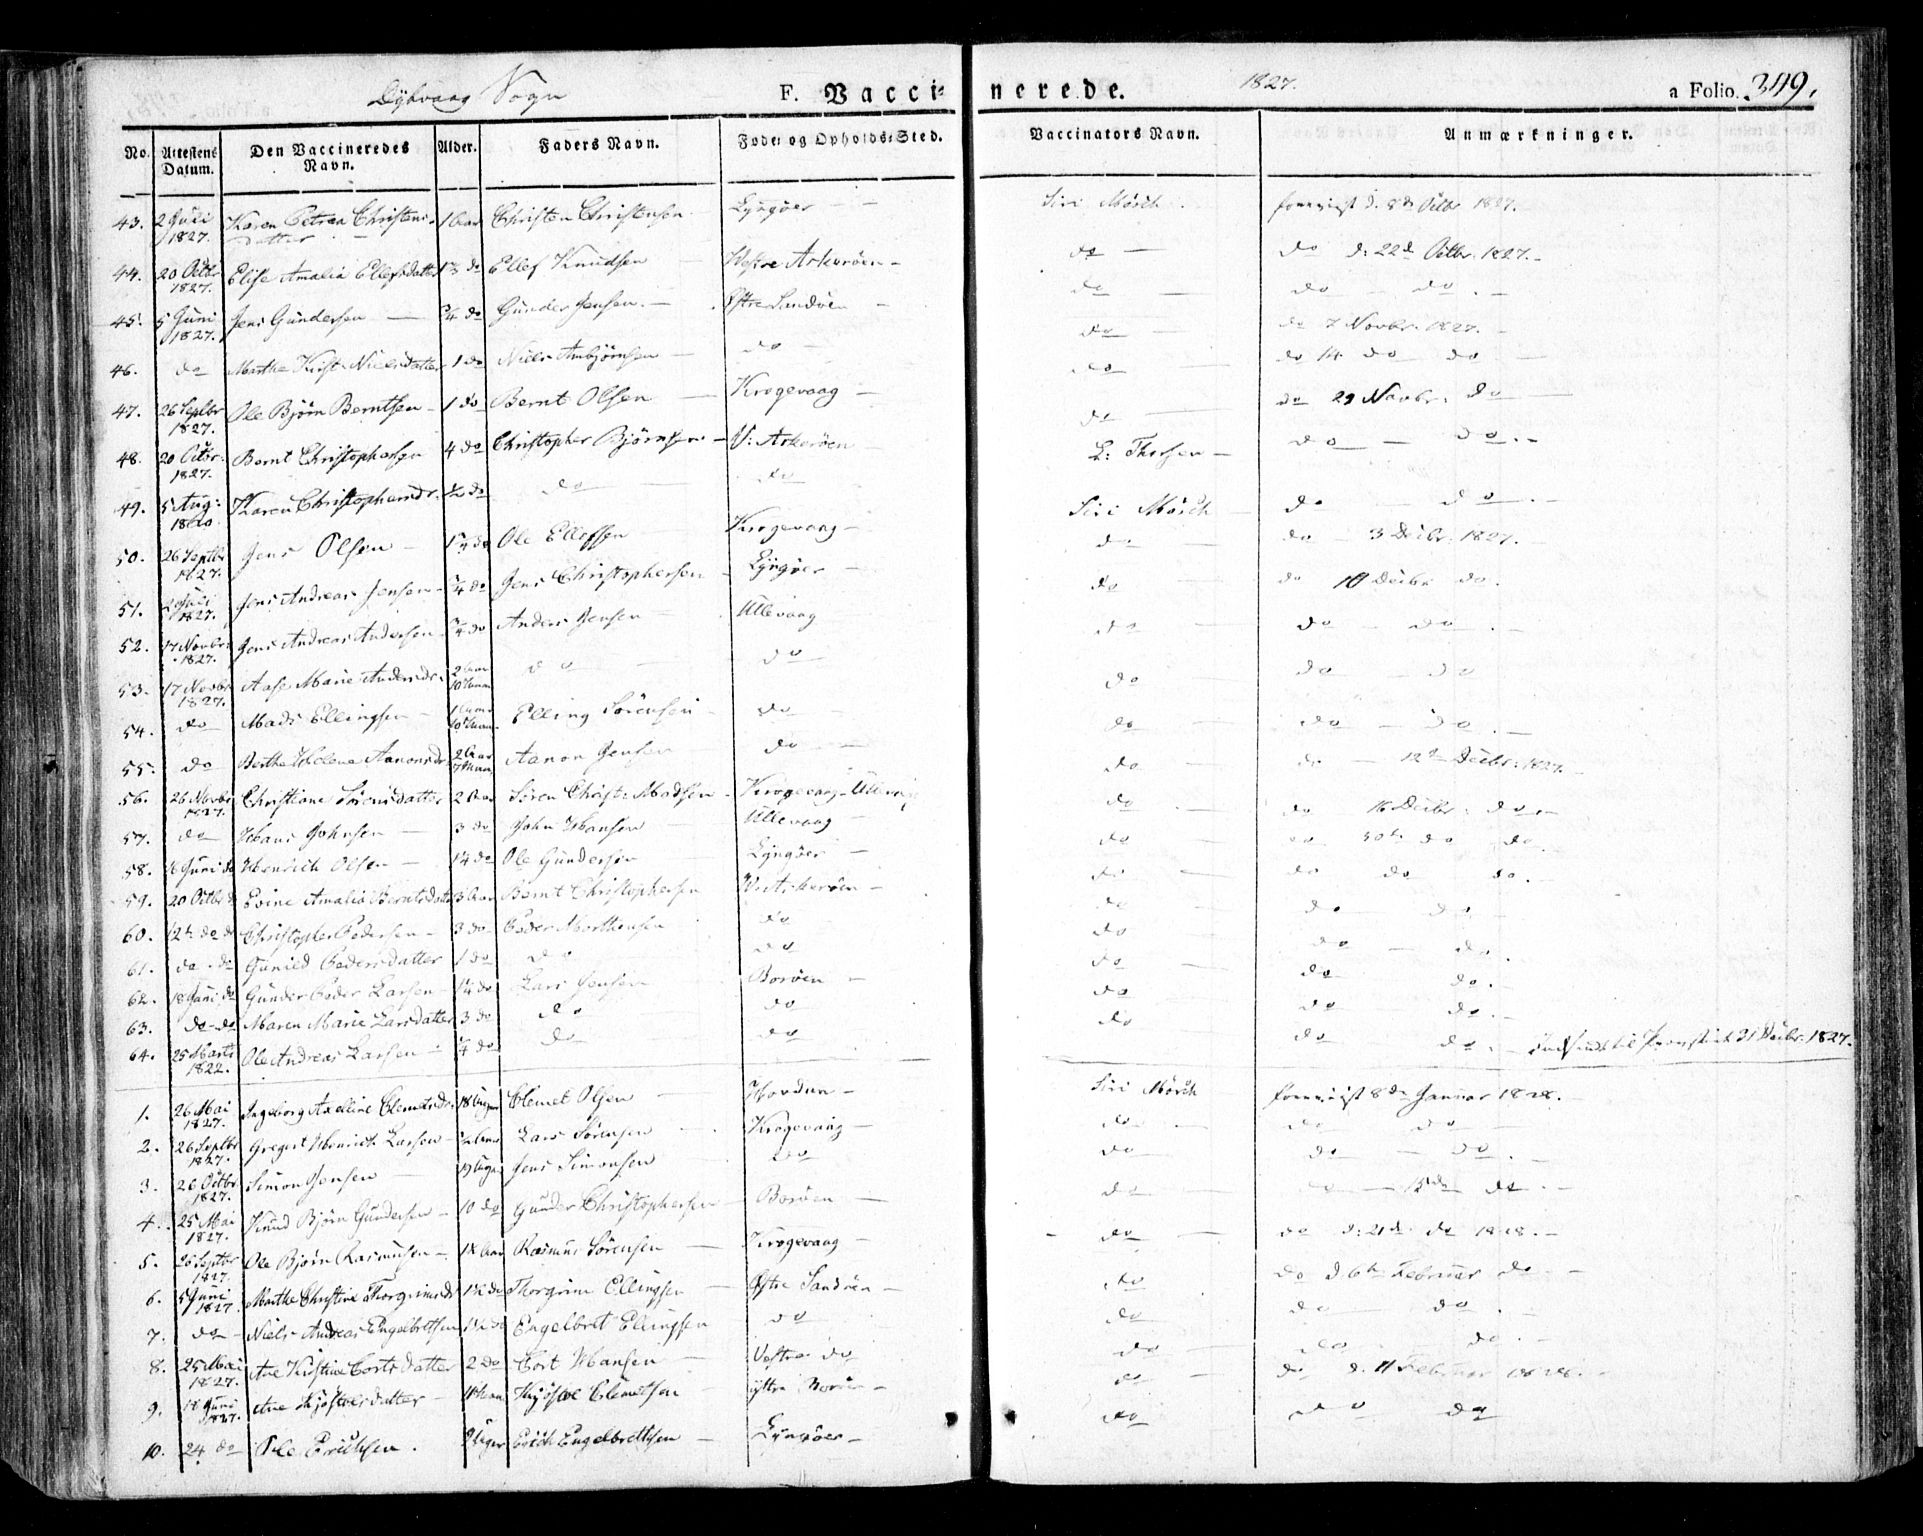 Dybvaag Sogn F. Vaccinerede. 1827. a Folio 349.
No. Attestens Datum. Den Vaccineredes Navn. Alder. Faders Navn. Føde: og Opholds: Sted. Vaccinators Navn. Anmærkninger.
43. 2 Juli 1827. Karen Petrea Christensdatter 1 Aar Christen Christensen Lyngøer Siri Mörch foreviist d. 8de Octbr 1827.
44. 20 Octbr 1827. Elise Amalia Ellefsdatter do Ellef Knudsen Westre Askerøen do do d: 22d Octbr 1827.
45. 5 Juni 1827. Jens Gundersen 3/4 do Gunder Jensen Østre Sandøen do do do
46. do Marthe Kirst. Nielsdatter 1 do Niels Anbjørnsen do do do 7 Novbr. 1827.
47. 26 Septbr 1827. Ole Bjørn Berntsen 1 do Bernt Olsen Krogevaag do do 14 do do
48. 20 Octbr: 1827. Bernt Christophersen 4 do Christopher Bjørnsen V: Askerøen do do 29 Novbr: do
49. 5 Aug: Karen Christophersdr. 1/2 do do do L: Thorsen do do
50. 26 Septbr 1827. Jens Olsen do Ole Ellefsen Krogevaag Siri Mörch do do
51. 2 Juli 1827. Jens Andreas Jensen 3/4 do Jens Christophersen Lyngøer do do 3 Decbr. 1827.
52. 17 Novbr: 1827. Jens Andreas Andersen 3/4 do Anders Jensen Ullevaag do do 10 Decbr do.
53. 17 Novbr 1827. Aase Marie Andersdr. 2 Aar do do do do do
54. do Mads Ellingsen Elling Sörensen do do do do
55. do Berthe Helene Aanonsdr. 2 Aar Aanon Jensen do do do do
56. 26 Novbr 1827. Christiane Sörensdatter 2 Aar Sören Christ: Madsen Krogevaag Ullevaag do do 12d Decbr: 1827.
57. do Hans Johnsen 3 do John Hansen Ullevaag do do 16 Decbr: do
58. 16 Juni do Henrich Olsen 1/4 do Ole Gundersen Lyngøer do do 30te do do
59. 20 Octbr do Evine Amalia Berntsdatter 3 Aar Bernt Christophersen V: Askerøen do do do do.
60. 12te do do Christopher Pedersen 3 do Peder Morthensen do do do do
61. do do Gunild Pedersdatter 1 do do do do do do.
62. 18 Juni do Gunder Peder Larsen 1/4 do Lars Jensen Borøen do do do.
63. do do Maren Marie Larsdatter 3 do do do do do do.
64. 25 Marts 1822. Ole Andreas Larsen 3/4 do do do do do do. Indsendt til Provstiet 31 Decbr. 1827.
1. 26 Mai 1827. Ingeborg Axelline Clemetsdr. 18 Uger Clemet Olsen Hovdan Siri Mörch foreviist 8de Januar 1828.
2. 26 Septbr 1827. Gregert Henrich Larsen 1/2 Aar Lars Sörensen Krogevaag do do do
3. 26 Octbr 1827. Simon Jensen 19 Uger Jens Simonsen do do do do.
4. 25 Mai 1827. Knud Björn Gundersen 10 do Gunder Christophersen Borøen do do 15de do
5. 26 Septbr 1827. Ole Björn Rasmusen Aar Rasmus Sörensen Krogevaag do do d: 21de do 1828.
6. 5 Juni 1827. Marthe Christine Thorgrimsdr do Thorgrim Ellingsen Østre Sandøen do do d 6te Februar do
7. do Niels Andreas Engelbretsen do Engelbret Ellingsen do do do do.
8. 25 Mai 1827. Ane Kirstine Cortsdatter 2 do Cort Hansen Vestre do do do do.
9. 18 Juni 1827. Ane Kjöstvelsdatter Kjöstvel Clemetsen yttre Borøen do do d. 11 Februar 1828.
10. 24 do Ole Erichsen 9 Uger Erich Engelbrettsen Lyngøer do do do